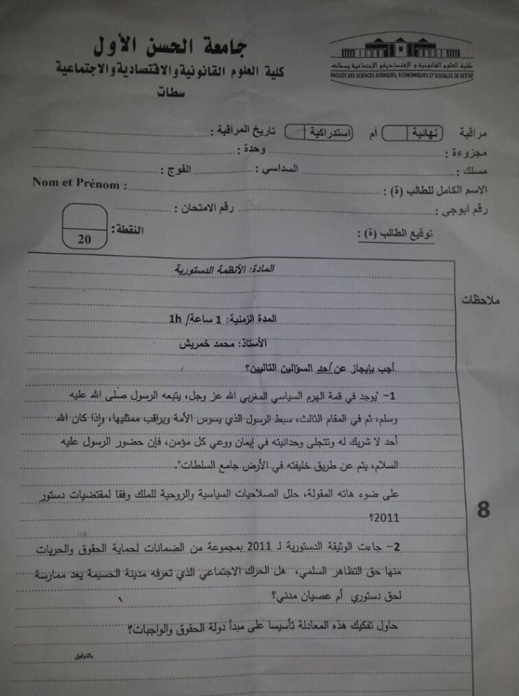 جامعة الحسن الأول
كلية العلوم القانونية والاقتصادية والاجتماعية
سطات
كلية العلوم القانونية و الاقتصادية و الاجتماعية بسطات
FACULTE DES SCIENCES JURIDIQUES, ECONOMIQUES ET SOCIALES DE SETTAT
مراقبة نهائية أم استدراكية تاريخ المراقبة :
مجزوءة : وحدة :
مسلك : السداسي : الفوج :
الاسم الكامل للطالب (ة) : Nom et Prénom :
رقم أبوجي : رقم الامتحان :
توقيع الطالب (ة) : النقطة : 20
ملاحظات
المادة: الأنظمة الدستورية
المدة الزمنية: 1 ساعة/ 1h
الأستاذ: محمد خمريش
أجب بإيجاز عن أحد السؤالين التاليين؟
1– "يوجد في قمة الهرم السياسي المغربي الله عز وجل، يتبعه الرسول صلى الله عليه
وسلم، ثم في المقام الثالث، سبط الرسول الذي يسوس الأمة ويراقب ممثليها، وإذا كان الله
أحد لا شريك له وتتجلى وحدانيته في إيمان ووعي كل مؤمن، فإن حضور الرسول عليه
السلام، يتم عن طريق خليفته في الأرض جامع السلطات".
على ضوء هاته المقولة، حلل الصلاحيات السياسية والروحية للملك وفقا لمقتضيات دستور
2011؟
8
2– جاءت الوثيقة الدستورية لـ 2011 بمجموعة من الضمانات لحماية الحقوق والحريات
منها حق التظاهر السلمي، هل الحراك الاجتماعي الذي تعرفه مدينة الحسيمة يعد ممارسة
لحق دستوري أم عصيان مدني؟
حاول تفكيك هذه المعادلة تأسيسا على مبدأ دولة الحقوق والواجبات؟
بالتوفيق